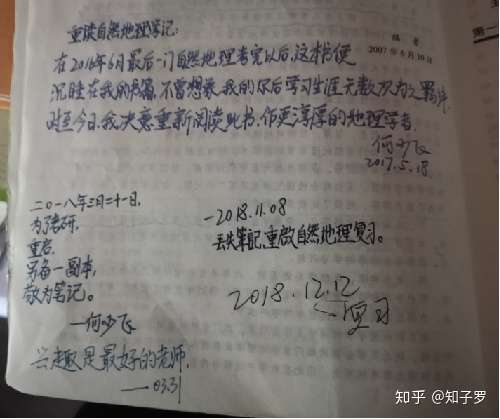 编 者
2007年6月10日
重读自然地理学记:
在2016年6月最后一门自然地理考完以后,这本书便
沉睡在我的书箱,不曾想象,我的尔后学习生涯无数次为之羁绊.
时至今日,我决意重新阅读此书,作更淳厚的地理学者.
何吵飞
2017.5.18.
二〇一八年三月二十一日.
为了考研,
重启.
另备一副本,
故为笔记。
—何吵飞
兴趣是最好的老师.
——03.31
—2018.11.08
丢失笔记,重做自然地理复习。
2018.12.12
复习
知乎 @知子罗